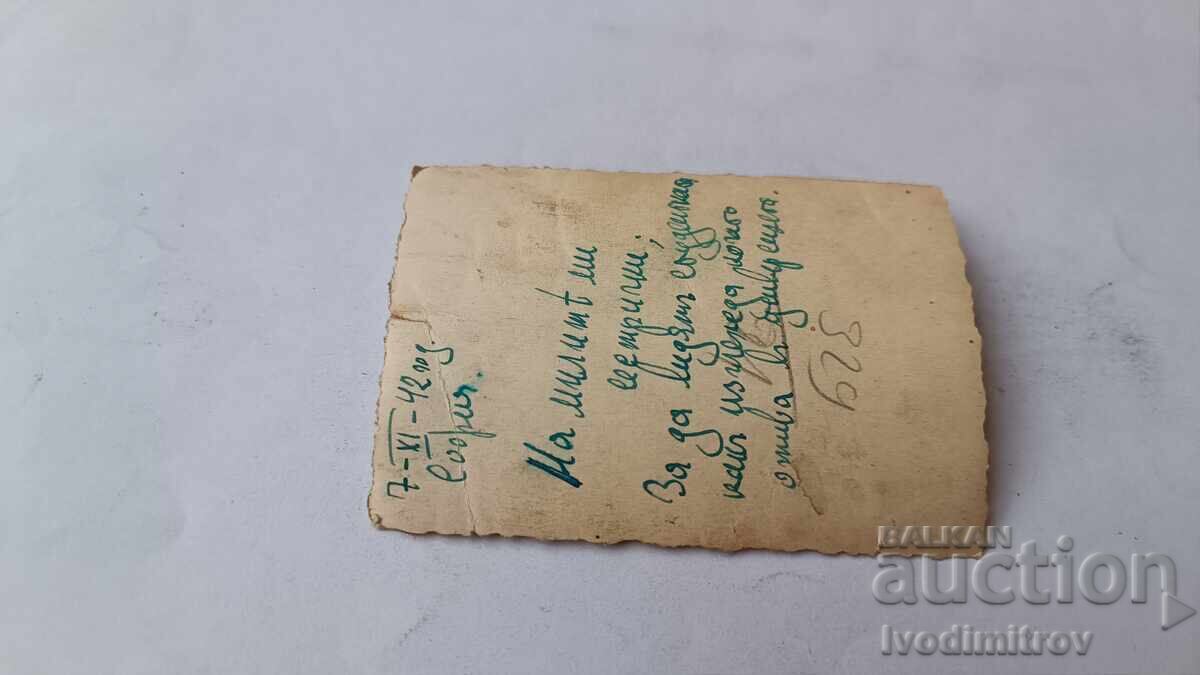 7-XI-42 год
София.
На милитѣ ми
сестрички,
За да видятъ студентка
какъ изглежда когато
отива въ
629
BALKAN
auction
Ivodimitrov